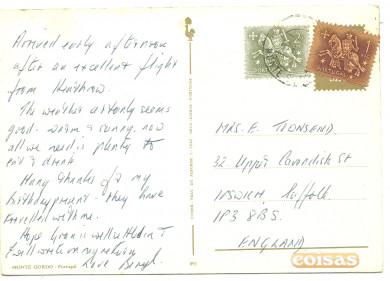 Arrived early afternoon
after an excellent flight
from Heathrow.
The weather certainly seems
good - warm & sunny, now
all we need is plenty to
eat & drink
Many thanks for my
birthday present - they have
travelled with me.
Hope Gran is well
I will write on my return
Love
MONTE GORDO - Portugal
MRS. F. TIONSEND.
32 UPPER CAVENDISH ST
IPSWICH, Suffolk.
IP3 8BS.
ENGLAND
coisas